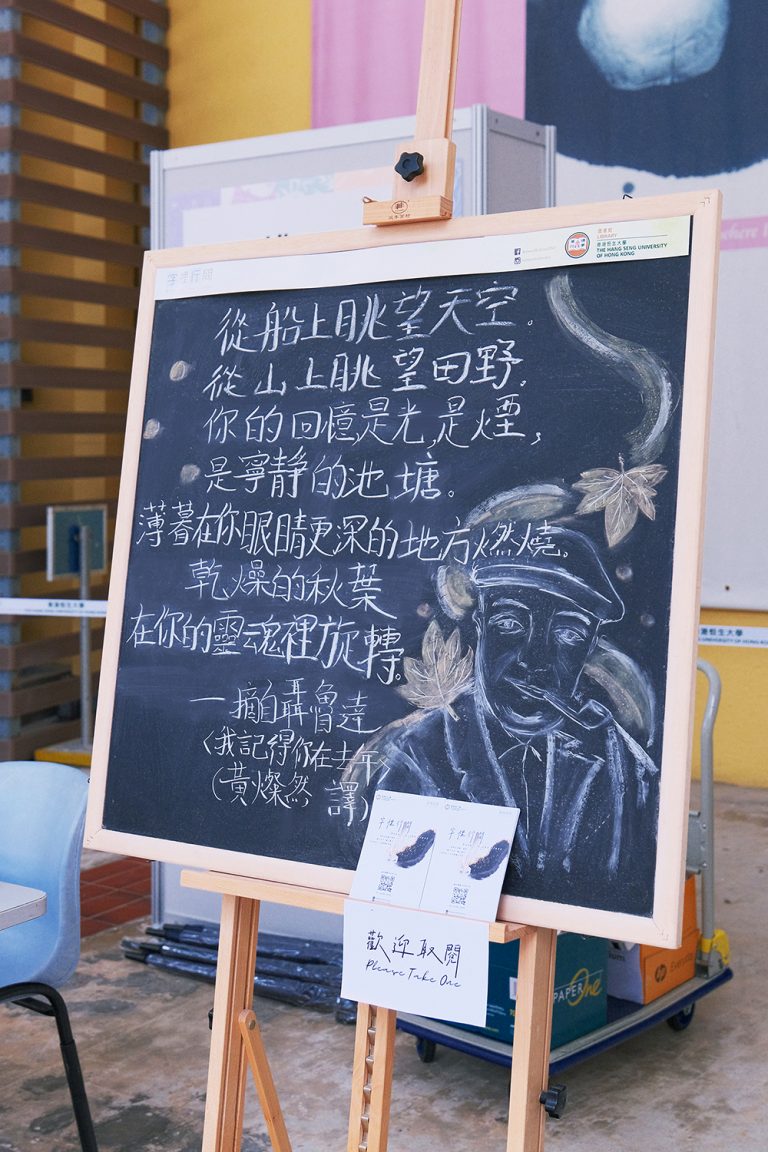 圖書館
LIBRARY
香港恒生大學
THE HANG SENG UNIVERSITY
OF HONG KONG
字裡行間
從船上眺望天空。
從山上眺望田野。
你的回憶是光,是煙,
是寧靜的池塘。
薄暮在你眼睛更深的地方燃燒。
乾燥的秋葉
在你的靈魂裡旋轉。
—摘自聶魯達
〈我記得你在去年
(黃燦然 譯)
字裡行間
字裡行間
歡迎取閱
Please Take One
香港恒生大學
PAPEROne
hp